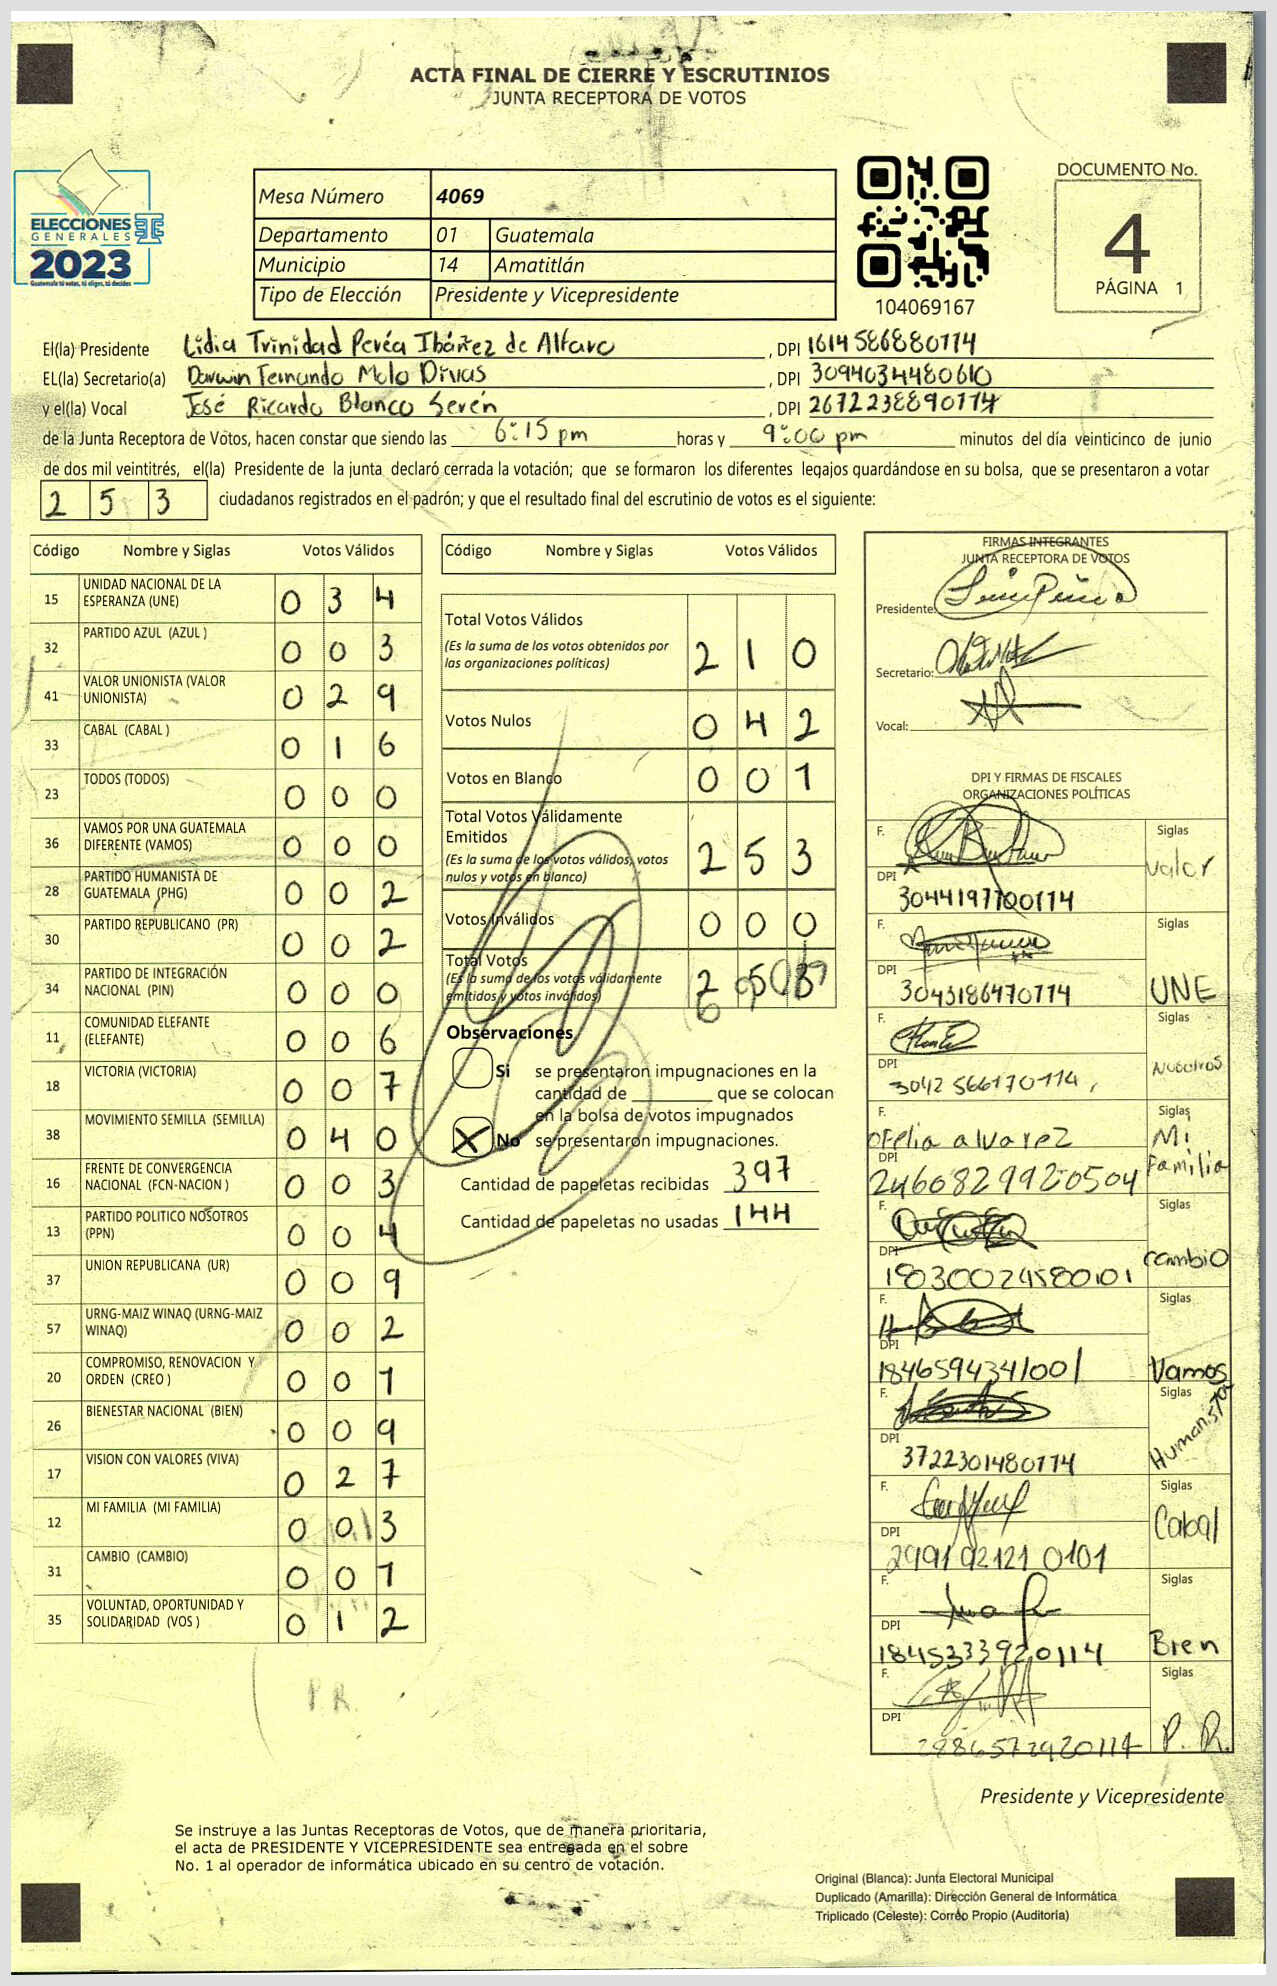 ACTA FINAL DE CIERRE Y ESCRUTINIOS
JUNTA RECEPTORA DE VOTOS
ELECCIONES
GENERALES
2023
Guatemala tú votas, tú eliges, tú decides
Mesa Número 4069
Departamento 01 Guatemala
Municipio 14 Amatitlán
Tipo de Elección Presidente y Vicepresidente
104069167
DOCUMENTO No.
4
PÁGINA 1
El(la) Presidente Lidia Trinidad Peréa Ibáñez de Alfaro, DPI 1614586880114
EL(la) Secretario(a) Darwin Fernando Melo Divas, DPI 3094034480610
y el(la) Vocal José Ricardo Blanco Serén, DPI 2672238890114
de la Junta Receptora de Votos, hacen constar que siendo las 6:15 pm horas y 9:00 pm minutos del día veinticinco de junio
de dos mil veintitrés, el(la) Presidente de la junta declaró cerrada la votación; que se formaron los diferentes legajos guardándose en su bolsa, que se presentaron a votar
253 ciudadanos registrados en el padrón; y que el resultado final del escrutinio de votos es el siguiente:
Código Nombre y Siglas Votos Válidos
15 UNIDAD NACIONAL DE LA ESPERANZA (UNE) 0 3 4
32 PARTIDO AZUL (AZUL ) 0 0 3
41 VALOR UNIONISTA (VALOR UNIONISTA) 0 2 9
33 CABAL (CABAL ) 0 1 6
23 TODOS (TODOS) 0 0 0
36 VAMOS POR UNA GUATEMALA DIFERENTE (VAMOS) 0 0 0
28 PARTIDO HUMANISTA DE GUATEMALA (PHG) 0 0 2
30 PARTIDO REPUBLICANO (PR) 0 0 2
34 PARTIDO DE INTEGRACIÓN NACIONAL (PIN) 0 0 0
11 COMUNIDAD ELEFANTE (ELEFANTE) 0 0 6
18 VICTORIA (VICTORIA) 0 0 7
38 MOVIMIENTO SEMILLA (SEMILLA) 0 4 0
16 FRENTE DE CONVERGENCIA NACIONAL (FCN-NACION ) 0 0 3
13 PARTIDO POLITICO NOSOTROS (PPN) 0 0 4
37 UNION REPUBLICANA (UR) 0 0 9
57 URNG-MAIZ WINAQ (URNG-MAIZ WINAQ) 0 0 2
20 COMPROMISO, RENOVACION Y ORDEN (CREO ) 0 0 1
26 BIENESTAR NACIONAL (BIEN) 0 0 9
17 VISION CON VALORES (VIVA) 0 2 7
12 MI FAMILIA (MI FAMILIA) 0 0 3
31 CAMBIO (CAMBIO) 0 0 1
35 VOLUNTAD, OPORTUNIDAD Y SOLIDARIDAD (VOS ) 0 1 2
P.R.
Código Nombre y Siglas Votos Válidos
Total Votos Válidos 2 1 0
(Es la suma de los votos obtenidos por
las organizaciones políticas)
Votos Nulos 0 4 2
Votos en Blanco 0 0 1
Total Votos Válidamente
Emitidos 2 5 3
(Es la suma de los votos válidos, votos
nulos y votos en blanco)
Votos Inválidos 0 0 0
Total Votos 2 5 3
(Es la suma de los votos válidamente
emitidos y votos inválidos)
Observaciones
Si se presentaron impugnaciones en la
cantidad de ________ que se colocan
en la bolsa de votos impugnados
X No se presentaron impugnaciones.
Cantidad de papeletas recibidas 397
Cantidad de papeletas no usadas 144
FIRMAS INTEGRANTES
JUNTA RECEPTORA DE VOTOS
Presidente:
Secretario:
Vocal:
DPI Y FIRMAS DE FISCALES
ORGANIZACIONES POLÍTICAS
F. Siglas
Valor
DPI
3044197700114
F. Siglas
DPI
3043186470114 UNE
F. Siglas
DPI Nosotros
3042566170114
F. Siglas
ofelia alvarez Mi
DPI Familia
2460829920504
F. Siglas
DPI cambio
18030024580101
F. Siglas
DPI
1846594341001 Vamos
F. Siglas
DPI Humanista
3722301480114
F. Siglas
Cabal
DPI
2991921210101
F. Siglas
DPI
1845333920114 Bien
F. Siglas
DPI
2986572920114 P. R.
Presidente y Vicepresidente
Se instruye a las Juntas Receptoras de Votos, que de manera prioritaria,
el acta de PRESIDENTE Y VICEPRESIDENTE sea entregada en el sobre
No. 1 al operador de informática ubicado en su centro de votación.
Original (Blanca): Junta Electoral Municipal
Duplicado (Amarilla): Dirección General de Informática
Triplicado (Celeste): Correo Propio (Auditoría)